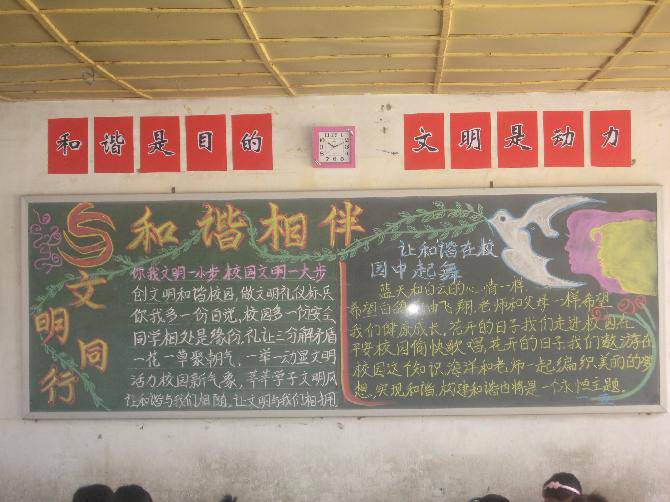 和谐是目的
文明是动力
和谐相伴
文明同行
你我文明一小步,校园文明一大步
创文明和谐校园,做文明礼仪标兵
你我多一份自觉,校园多一份安全
同学相处是缘份,礼让三分解矛盾
一花一草聚朝气,一举一动显文明
活力校园新气象,莘莘学子文明风
让和谐与我们相随,让文明与我们相拥
让和谐在校
园中起舞
蓝天和白云的心情一样
希望白鸽自由飞翔,老师和父母一样希望
我们健康成长,花开的日子我们走进校园在
平安校园愉快歌唱,花开的日子我们遨游在
校园这个知识海洋和老师一起编织美丽的梦
想,实现和谐,构建和谐也将是一个永恒主题.